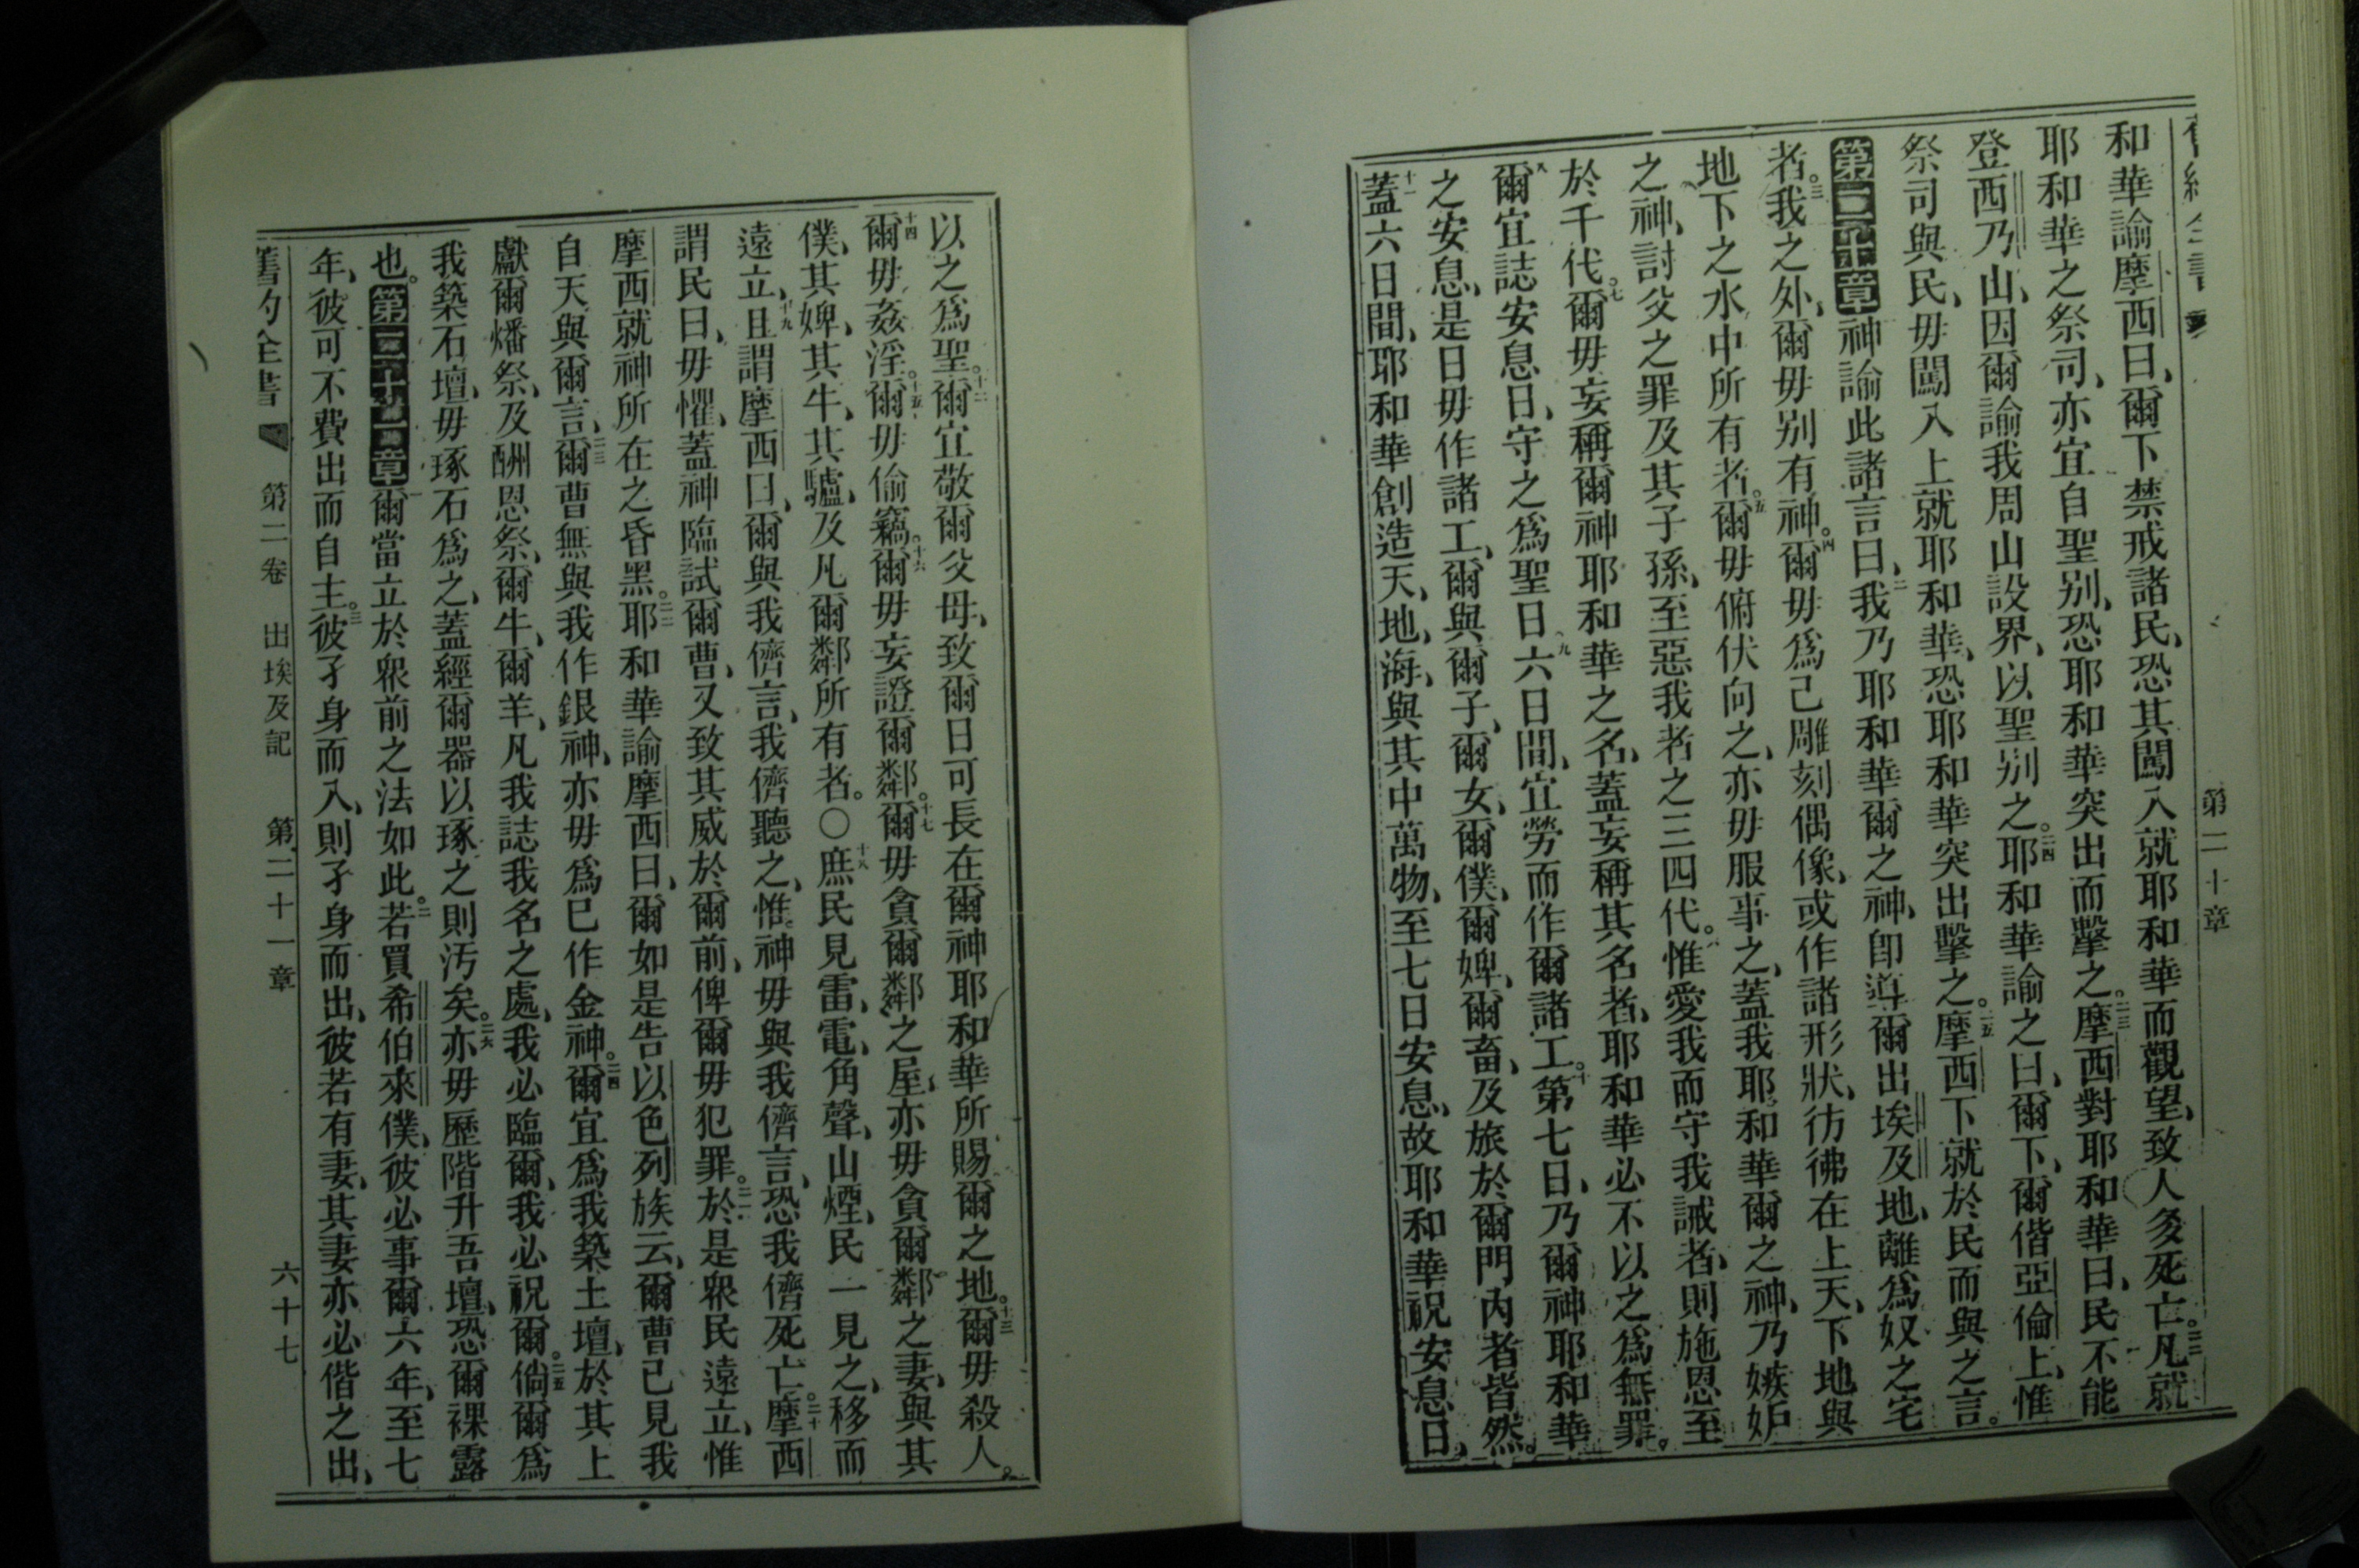 第二十章
和華諭摩西曰、爾下禁戒諸民、恐其闖入就耶和華而觀望、致人多死亡。二二凡就
耶和華之祭司、亦宜自聖別、恐耶和華突出而擊之。二三摩西對耶和華曰、民不能
登西乃山、因爾諭我周山設界、以聖别之。二四耶和華諭之曰、爾下、爾偕亞倫上、惟
祭司與民、毋闖入上就耶和華、恐耶和華突出擊之。二五摩西下就於民而與之言。
第二十章神諭此諸言曰、二我乃耶和華爾之神、即導爾出埃及地、離爲奴之宅
者。三我之外、爾毋别有神。四爾毋爲己雕刻偶像、或作諸形狀、彷彿在上天、下地與
地下之水中所有者。五爾毋俯伏向之、亦毋服事之、蓋我耶和華爾之神、乃嫉妒
之神、討父之罪及其子孫、至惡我者之三四代。六惟愛我而守我誡者、則施恩至
於千代。七爾毋妄稱爾神耶和華之名、蓋妄稱其名者、耶和華必不以之爲無罪。
八爾宜誌安息日、守之爲聖日。九六日間、宜勞而作爾諸工。十第七日、乃爾神耶和華
之安息、是日毋作諸工、爾與爾子、爾女、爾僕、爾婢、爾畜、及旅於爾門內者皆然。
十一蓋六日間、耶和華創造天、地、海、與其中萬物、至七日安息、故耶和華祝安息日、
以之爲聖。十二爾宜敬爾父母、致爾日可長在爾神耶和華所賜爾之地。十三爾毋殺人。
十四爾毋姦淫。十五爾毋偷竊。十六爾毋妄證爾鄰。十七爾毋貪爾鄰之屋、亦毋貪爾鄰之妻、與其
僕、其婢、其牛、其驢、及凡爾鄰所有者。○十八庶民見雷、電、角聲、山煙、民一見之、移而
遠立、十九且謂摩西曰、爾與我儕言、我儕聽之、惟神毋與我儕言、恐我儕死亡。二十摩西
謂民曰、毋懼、蓋神臨試爾曹、又致其威於爾前、俾爾毋犯罪。二一於是衆民遠立、惟
摩西就神所在之昏黑。二二耶和華諭摩西曰、爾如是告以色列族云、爾曹已見我
自天與爾言、二三爾曹無與我作銀神、亦毋爲己作金神。二四爾宜爲我築土壇、於其上
獻爾燔祭、及酬恩祭、爾牛、爾羊、凡我誌我名之處、我必臨爾、我必祝爾。二五倘爾爲
我築石壇、毋琢石爲之、蓋經爾器以琢之則汚矣。二六亦毋歷階升吾壇、恐爾裸露
也。第二十一章一爾當立於衆前之法如此。二若買希伯來僕、彼必事爾六年、至七
年、彼可不費出而自主。三彼孑身而入、則孑身而出、彼若有妻、其妻亦必偕之出、
舊約全書 第二卷 出埃及記 第二十一章 六十七